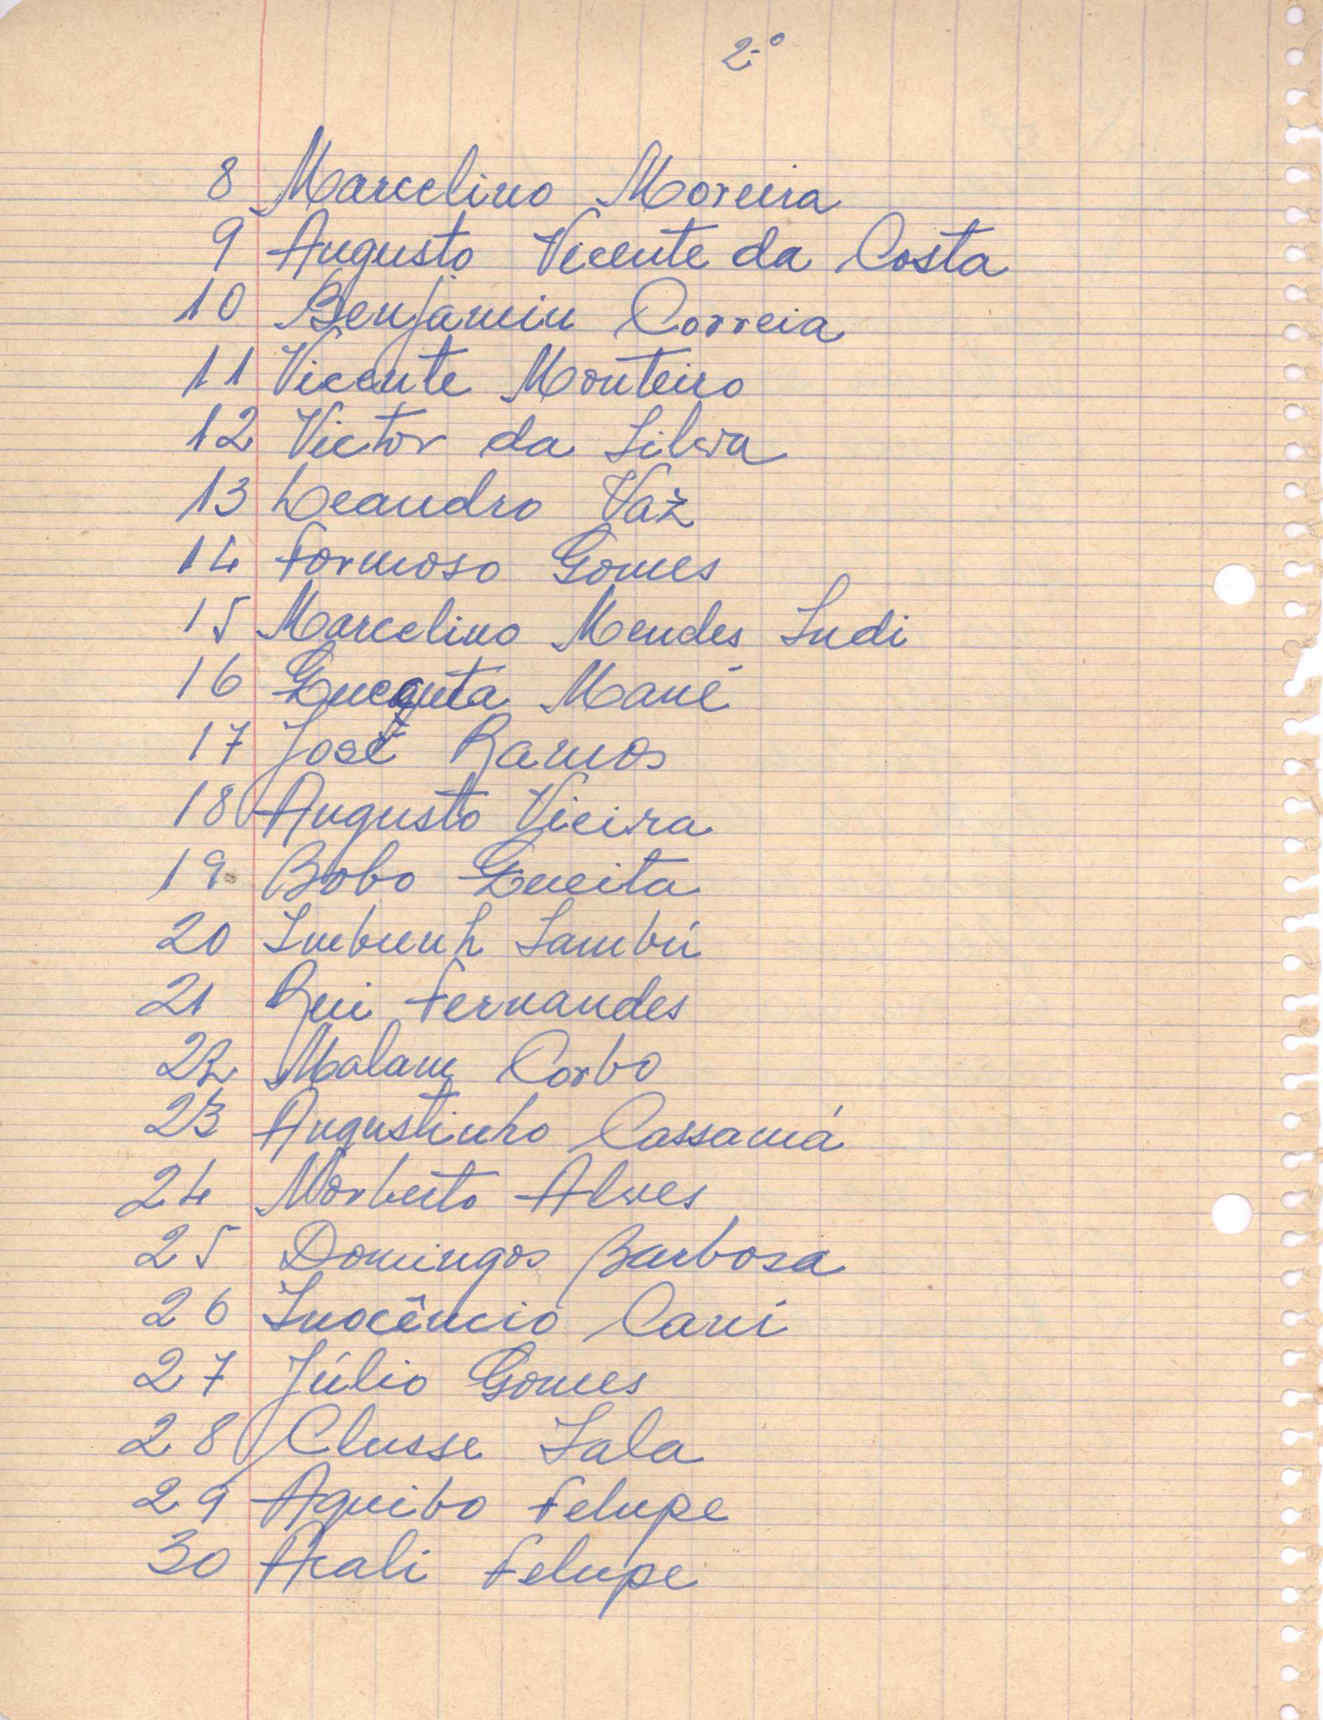 2º
8 Marcelino Moreira
9 Augusto Vicente da Costa
10 Benjamin Correia
11 Vicente Monteiro
12 Victor da Silva
13 Leandro Vaz
14 Formoso Gomes
15 Marcelino Mendes Indi
16 Mané
17 José Ramos
18 Augusto Vieira
19 Bobo
20
21 Rui Fernandes
22 Malam Corbo
23 Augustinho Cassamá
24 Norberto Alves
25 Domingos Barbosa
26 Inocêncio Cani
27 Júlio Gomes
28 Clusse Sala
29 Aquibo Felupe
30 Acali Felupe